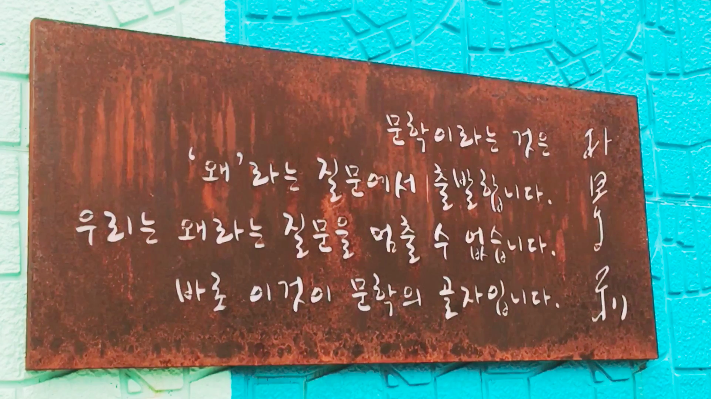 문학이라는 것은
'왜'라는 질문에서 출발합니다.
우리는 왜라는 질문을 멈출 수 없습니다.
바로 이것이 문학의 골자입니다.